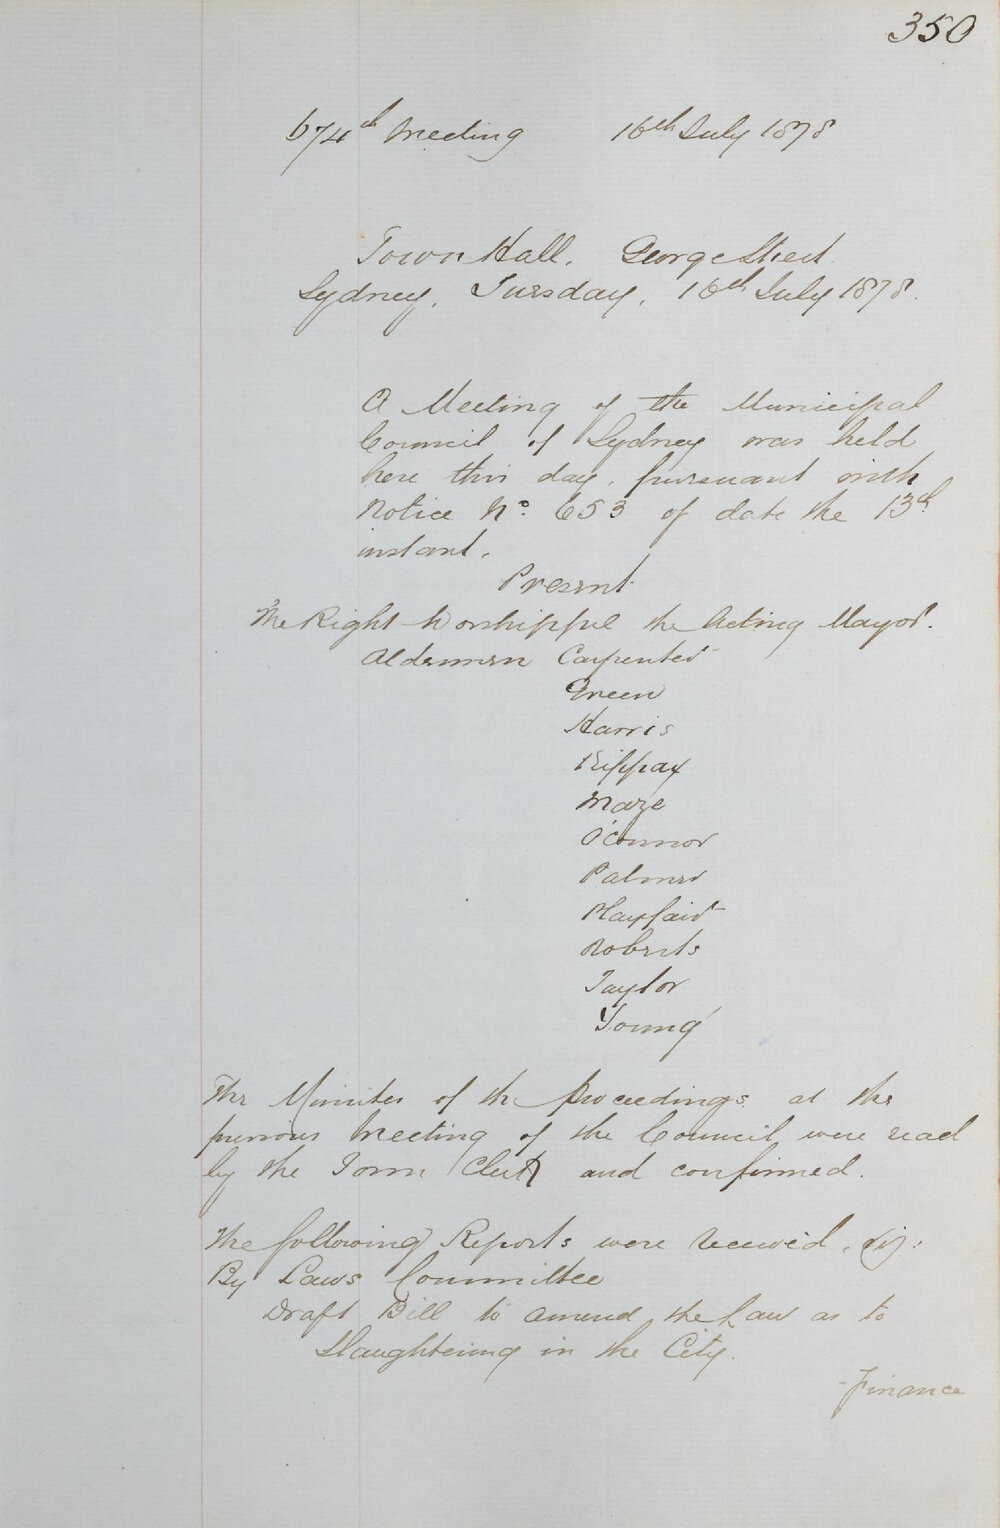 350
674th Meeting 16th July 1878
Town Hall, George Street
Sydney, Tuesday, 16th July 1878.
A Meeting of the Municipal
Council of Sydney was held
here this day, pursuant with
Notice No. 653 of date the 13th
instant.
Present
The Right Worshipful the Acting Mayor.
Aldermen Carpenter
Green
Harris
Kippax
Maze
O'Connor
Palmer
Playfair
Roberts
Taylor
Young
The Minutes of the Proceedings at the
previous Meeting of the Council were read
by the Town Clerk and confirmed.
The following Reports were received, viz:
By Laws Committee
Draft Bill to amend the Law as to
Slaughtering in the City.
Finance